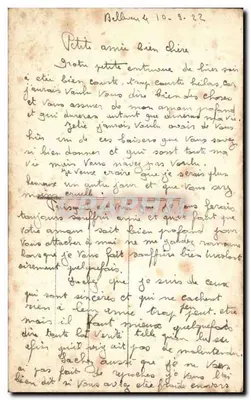 Bellevue le 10-8-22
Petite amie bien chère
Notre petite entrevue de hier soir
a été bien courte, trop courte hélas, car
j'aurais voulu vous dire bien des choses
et vous assurer de mon amour profond
et qui durera autant que durera ma vie.
déjà j'aurais voulu avoir de vous
un de ces baisers que vous savez
si bien donner et qui sont toute ma
vie mais vous n'avez pas voulu
je veux croire que je serais plus
heureux un autre jour et que vous serez
cruelle
toujours souffrir ainsi et qu'il faut que
votre amour soit bien profond pour
vous attacher à moi ne me gardez rancune
lorsque je vous fait souffrir bien involont
airement parfois.
que je suis de ceux
qui sont sincères et qui ne cachent
rien à leur amie trop peut-être
mais il faut mieux quelquefois
dire toute la vérité
afin qu'il n'y ait pas de malentendu
Sachez aussi que je ne vous
ai pas fait de reproches je vous ai
bien dit si vous avez été froide envers